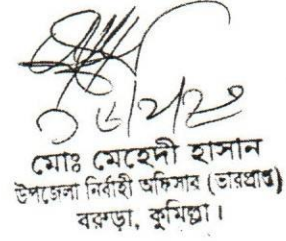 মোঃ মেহেদী হাসান
উপজেলা নির্বাহী অফিসার (ভারপ্রাপ্ত)
বরুড়া, কুমিল্লা।